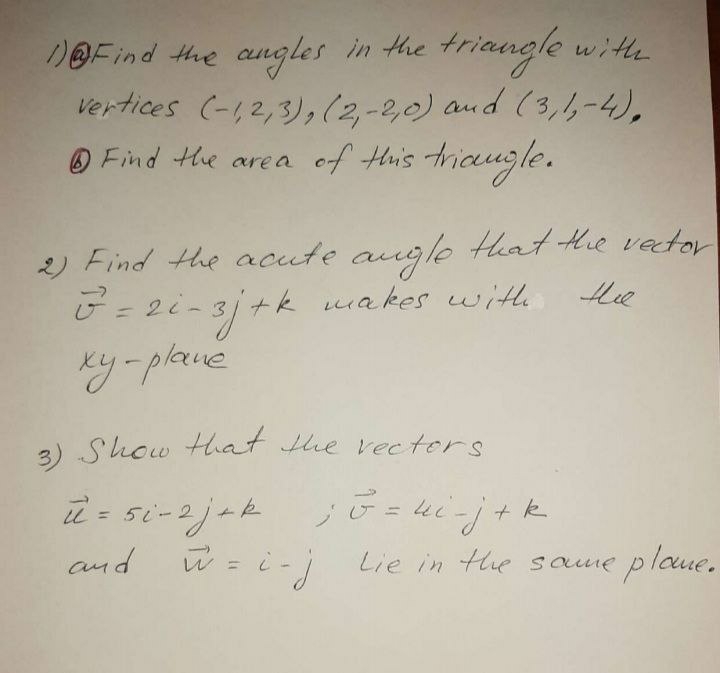 1) ⓐ Find the angles in the triangle with
vertices (-1,2,3), (2,-2,0) and (3,1,-4).
ⓑ Find the area of this triangle.
2) Find the acute angle that the vector
v⃗ = 2i - 3j + k makes with the
xy-plane
3) Show that the vectors
u⃗ = 5i - 2j + k ; v⃗ = 4i - j + k
and w⃗ = i - j Lie in the same plane.